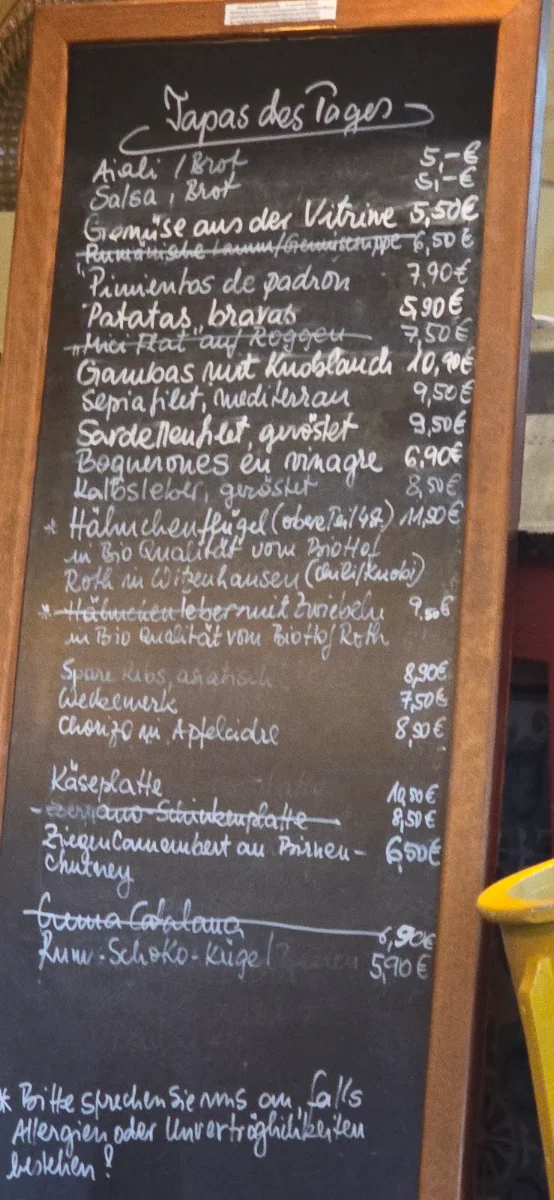 Tapas des Tages
Aiali / Brot 5,-€
Salsa, Brot 5,-€
Gemüse aus der Vitrine 5,50€
Rumänische Lamm/Gemüsesuppe 6,50€
Pimientos de padron 7,90€
Patatas bravas 5,90€
auf Roggen 7,50€
Gambas mit Knoblauch 10,90€
Sepiafilet, mediterran 9,50€
Sardellenfilet, geröstet 9,50€
Boquerones en vinagre 6,90€
Kalbsleber, geröstet 8,50€
* Hähnchenflügel (obere Teil/4St.) 11,90€
in Bio Qualität vom BioHof
Roth in Witzenhausen (Chili/Knobi)
* Hähnchenleber mit Zwiebeln 9,50€
in Bio Qualität vom BioHof Roth
Spare Ribs, asiatisch 8,90€
Weckewerk 7,50€
Chorizo in Apfelcidre 8,90€
Käseplatte 10,50€
Serrano-Schinkenplatte 8,50€
Ziegencamembert an Birnen- 6,50€
Chutney
Crema Catalana 6,90€
Rum-Schoko-Kugel 5,90€
* Bitte sprechen Sie uns an, falls
Allergien oder Unverträglichkeiten
bestehen!